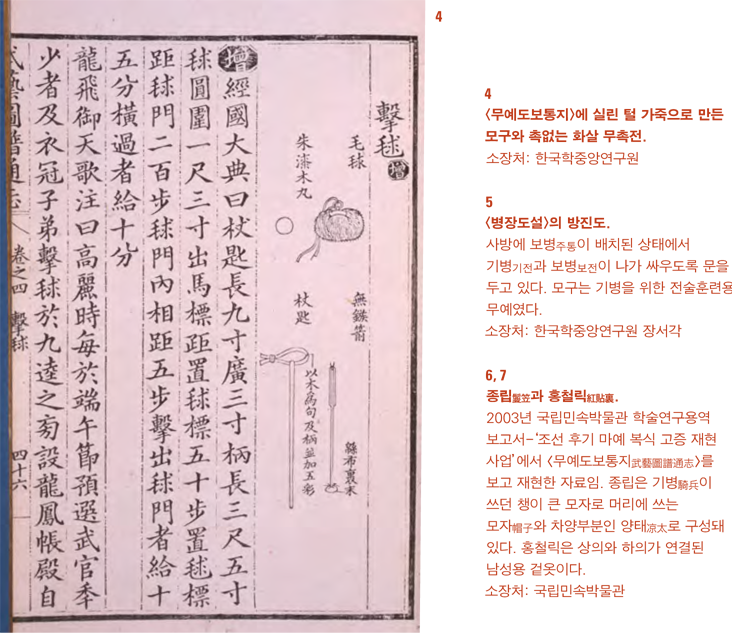 擊毬 增
毛毬
朱漆木丸
無鏃箭
緜布裹末
杖匙
以木爲句及柄並加五彩
增 經國大典曰杖匙長九寸廣三寸柄長三尺五寸
毬圓圍一尺三寸出馬標距置毬標五十步置毬標
距毬門二百步毬門內相距五步擊出毬門者給十
五分橫過者給十分
龍飛御天歌注曰高麗時每於端午節預選武官年
少者及衣冠子弟擊毬於九逵之旁設龍鳳帳殿自
武藝圖譜通志 卷之四 擊毬 四十六
4
4
〈무예도보통지〉에 실린 털 가죽으로 만든
모구와 촉없는 화살 무촉전.
소장처: 한국학중앙연구원
5
〈병장도설〉의 방진도.
사방에 보병主統이 배치된 상태에서
기병기전과 보병보전이 나가 싸우도록 문을
두고 있다. 모구는 기병을 위한 전술훈련용
무예였다.
소장처: 한국학중앙연구원 장서각
6, 7
종립鬉笠과 홍철릭紅貼裏.
2003년 국립민속박물관 학술연구용역
보고서-‘조선 후기 마예 복식 고증 재현
사업’에서 〈무예도보통지武藝圖譜通志〉를
보고 재현한 자료임. 종립은 기병騎兵이
쓰던 챙이 큰 모자로 머리에 쓰는
모자帽子와 차양부분인 양태凉太로 구성돼
있다. 홍철릭은 상의와 하의가 연결된
남성용 겉옷이다.
소장처: 국립민속박물관